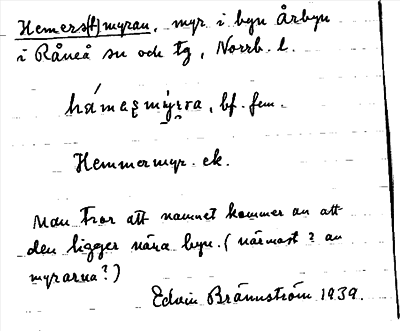 Hemers(t)myran, myr i byn Årbyn
i Råneå sn och tg, Norrb. l.
hámesmy̆rra, bf. fem.
Hemmermyr. ek.
Man tror att namnet kommer an att
den ligger nära byn. (närmast ? av
myrarna?)
Edvin Brännström 1939.